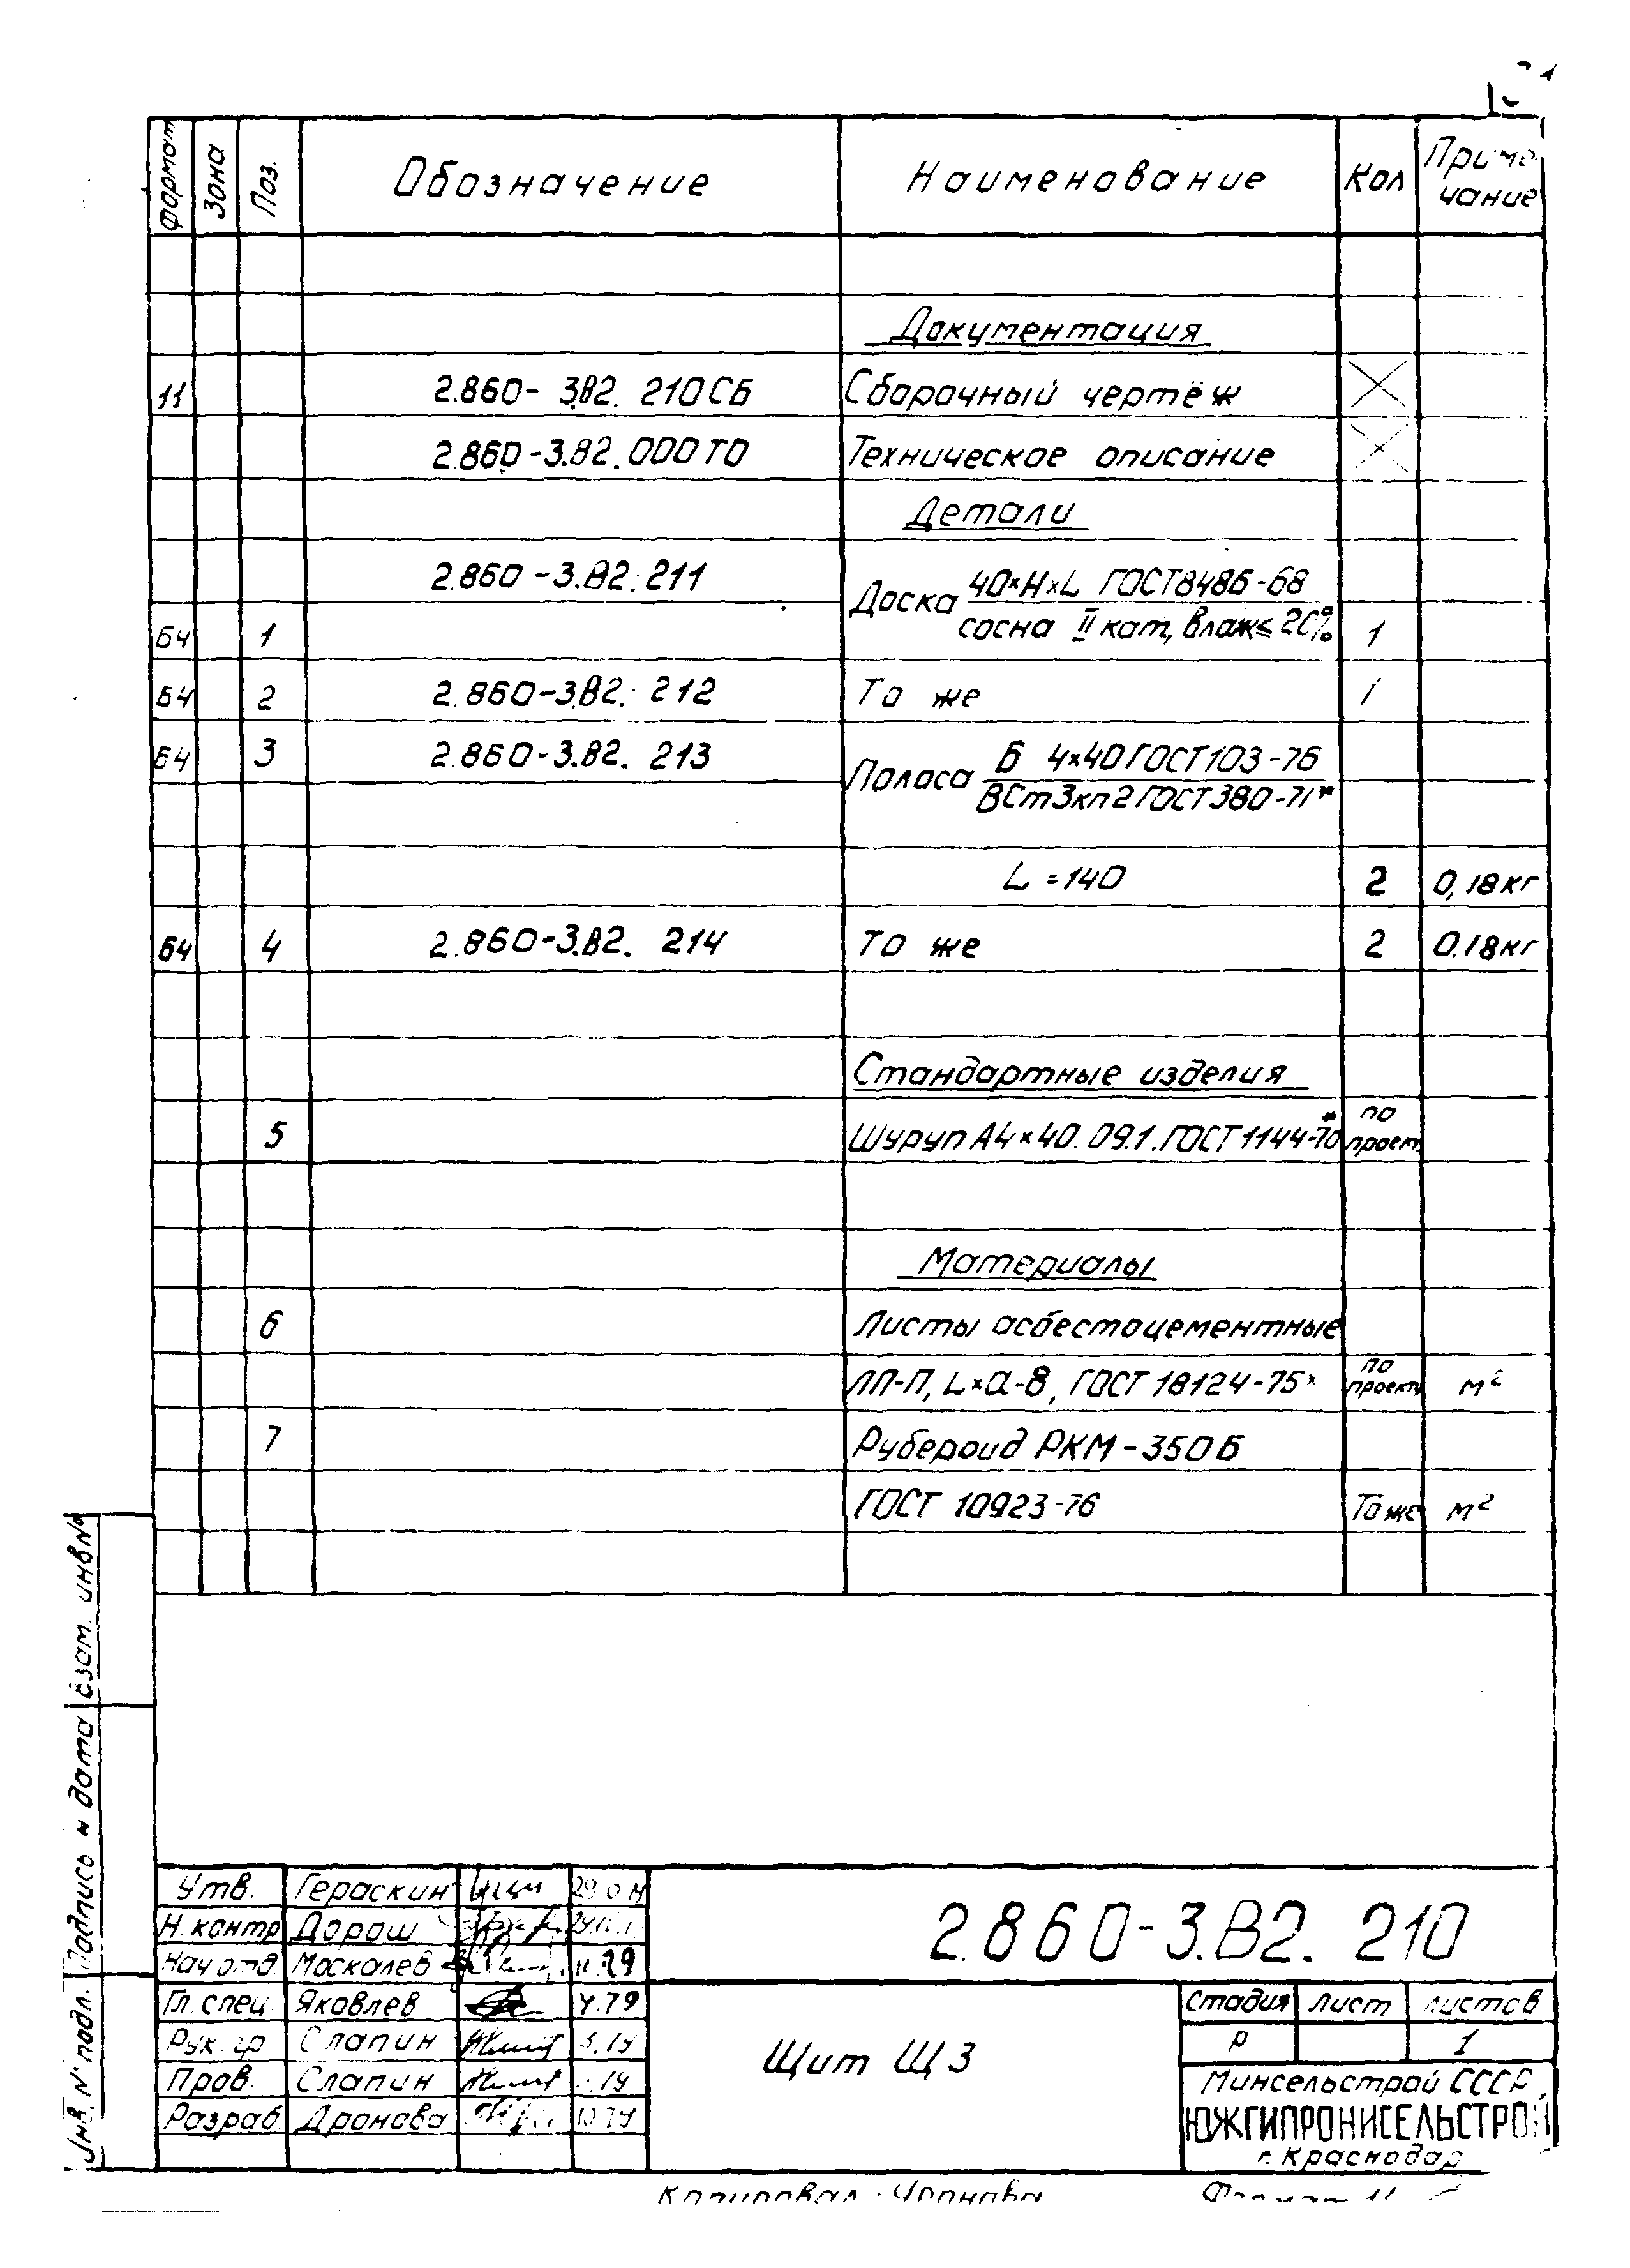 Формат Зона Поз. Обозначение Наименование Кол Приме-
чание
Документация
11 2.860-3.В2. 210СБ Сборочный чертёж
2.860-3.В2.000ТО Техническое описание
Детали
2.860-3.В2.211 Доска 40×Н×L ГОСТ8486-68
БЧ 1 сосна II кат, влаж≤20% 1
БЧ 2 2.860-3.В2. 212 То же 1
БЧ 3 2.860-3.В2. 213 Полоса Б 4×40 ГОСТ103-76
ВСт3кп2 ГОСТ380-71*
L=140 2 0,18кг
БЧ 4 2.860-3.В2. 214 То же 2 0.18кг
Стандартные изделия
5 Шуруп А4×40.09.1.ГОСТ1144-70* по проект.
Материалы
6 Листы асбестоцементные
ЛП-П, L×а-8, ГОСТ 18124-75* по проекту м²
7 Рубероид РКМ-350Б
ГОСТ 10923-76 То же м²
Взам. инв№
Подпись и дата
Инв. № подл.
Утв. Гераскин
Н.контр Дорош
Нач.отд Москалев 11.79
Гл.спец Яковлев 4.79
Рук.гр Слапин
Пров. Слапин
Разраб Дронова
2.860-3.В2. 210
Щит Щ3
Стадия Лист Листов
Р 1
Минсельстрой СССР,
ЮЖГИПРОНИСЕЛЬСТРОЙ
г.Краснодар
Копировал Формат 11